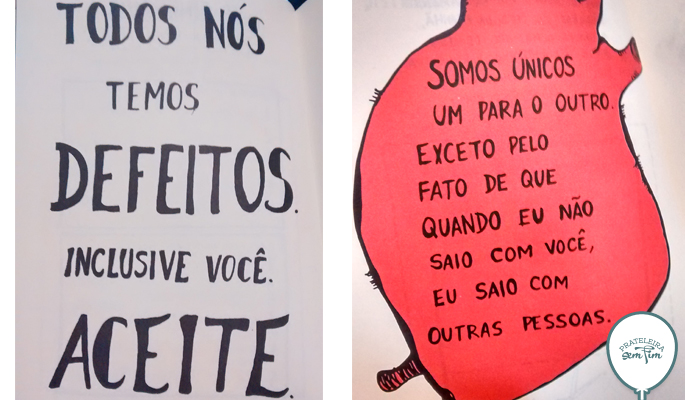 TODOS NÓS
TEMOS
DEFEITOS.
INCLUSIVE VOCÊ.
ACEITE.
SOMOS ÚNICOS
UM PARA O OUTRO.
EXCETO PELO
FATO DE QUE
QUANDO EU NÃO
SAIO COM VOCÊ,
EU SAIO COM
OUTRAS PESSOAS.
PRATELEIRA
sem fim